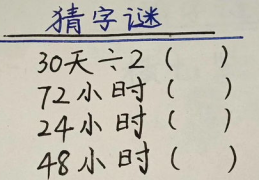 猜字谜
30天÷2（ ）
72小时（ ）
24小时（ ）
48小时（ ）